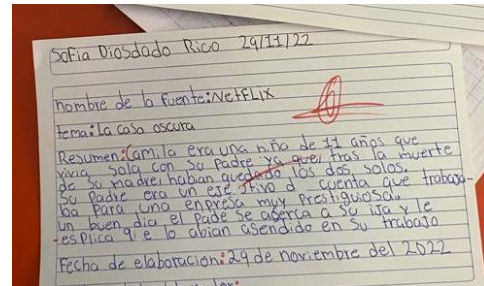 Sofia Diosdado Rico 29/11/22
nombre de la fuente: NetFLix
tema: La casa oscura
Resumen: Camila era una niña de 11 años que
vivia sola con Su Padre ya que, tras la muerte
de Su madre, habian quedado los dos solos.
Su Padre era un eje tivo d cuenta que trabaja-
ba Para una enpresa muy Prestiguiosa.
un buen dia el Pade Se aserca a Su ija y le
esplica q e lo abian asendido en Su trabajo
Fecha de elaboracion: 29 de noviembre del 2022